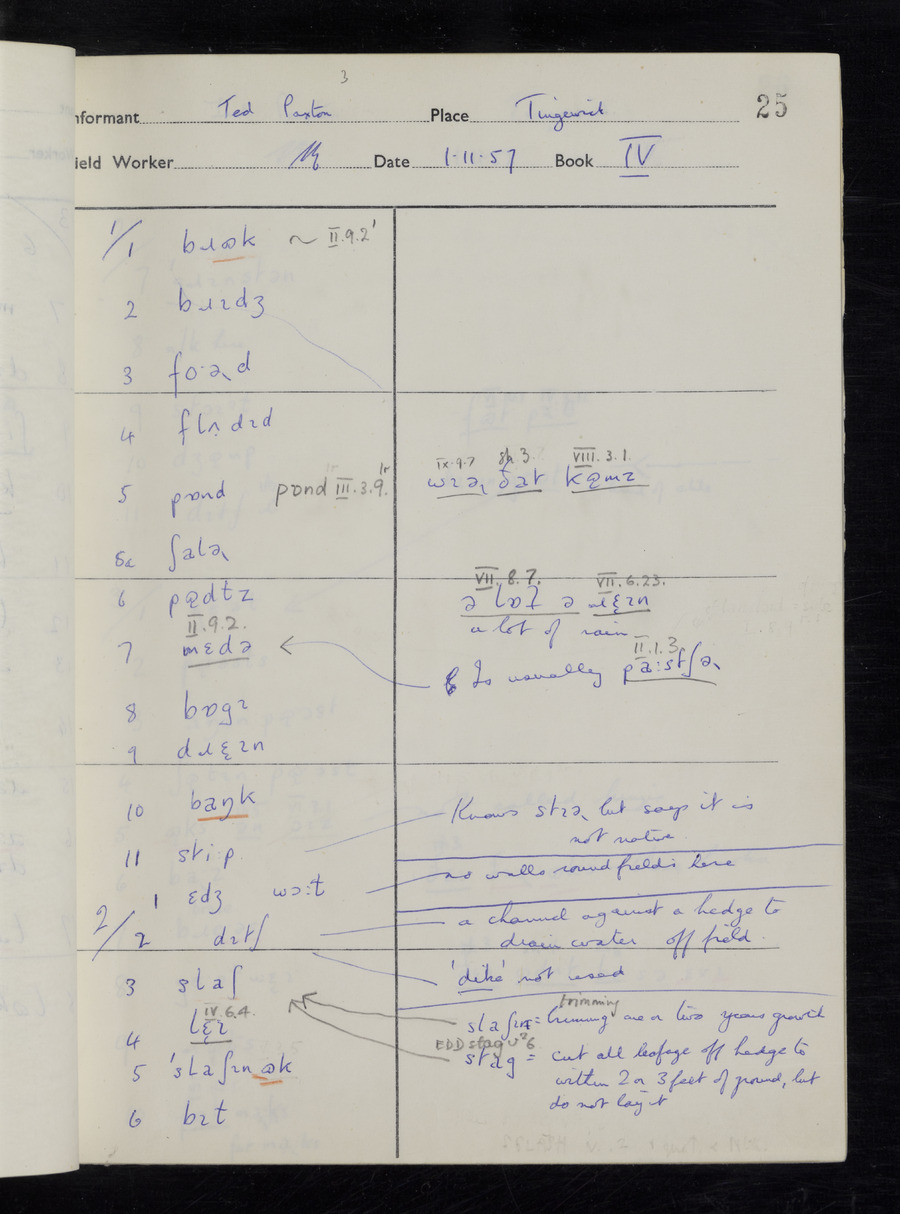 3
Informant Ted Paxton Place Tingewick 25
Field Worker Date 1·11·57 Book IV
1/1 bɹɷk ~ II.9.2'
2 bɹɪdʒ
3 fo·əɻd
4 flʌ̣dɪd
5 pɒnd pɒnd III.3.9.
IX.9.7 VIII.3.1.
wɪəɻ ðat kɷmɪ
5a ʃaləɻ
6 pɷdtɪ
VII.8.7. VII.6.23.
ə lɒʔ ə ɹɛ̝ɪn
a lot of rain
II.9.2.
7 mɛdə
II.1.3
Is usually pa:stʃəɻ
8 bɒgɪ
9 dɹɛ̝ɪn
10 baŋk
Knows stɪəɻ but says it is
not native
11 sti·p
no walls round fields here
2/1 ɛdʒ wɔ:t
2 dɪtʃ
a channel against a hedge to
drain water off field
'dike' not used
3 slaʃ
trimming
slaʃɪn = trimming one or two years growth
IV.6.4.
4 lɛ̝ɪ
EDD stag v²6
stag = cut all leafage off hedge to
within 2 or 3 feet of ground, but
do not lay it
5 'slaʃɪnɷk
6 bɪt